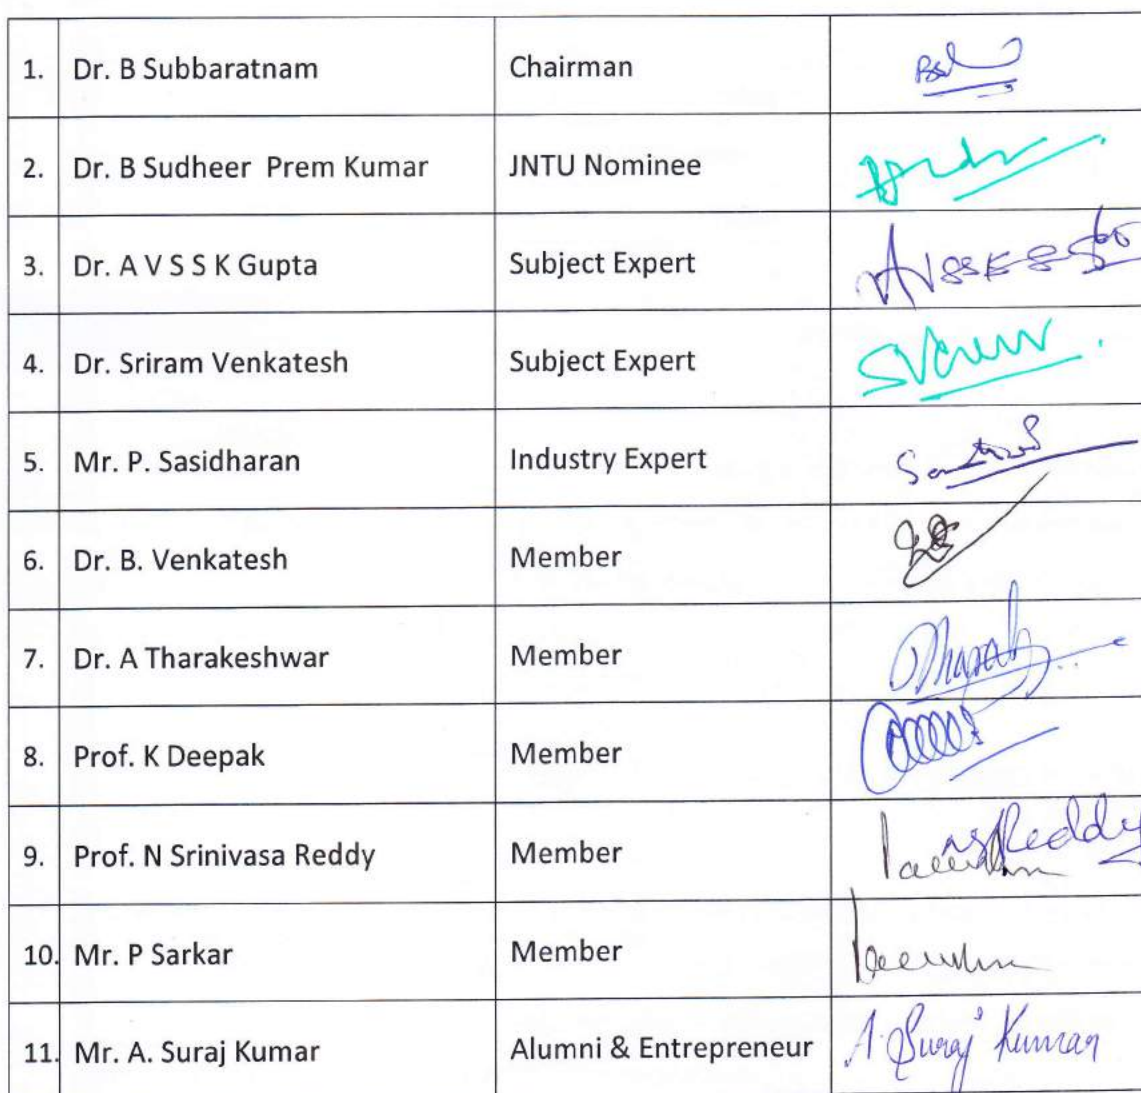 1. Dr. B Subbaratnam Chairman
2. Dr. B Sudheer Prem Kumar JNTU Nominee
3. Dr. A V S S K Gupta Subject Expert AVSSK
4. Dr. Sriram Venkatesh Subject Expert
5. Mr. P. Sasidharan Industry Expert
6. Dr. B. Venkatesh Member
7. Dr. A Tharakeshwar Member
8. Prof. K Deepak Member
9. Prof. N Srinivasa Reddy Member NSReddy
10. Mr. P Sarkar Member
11. Mr. A. Suraj Kumar Alumni & Entrepreneur A. Suraj Kumar